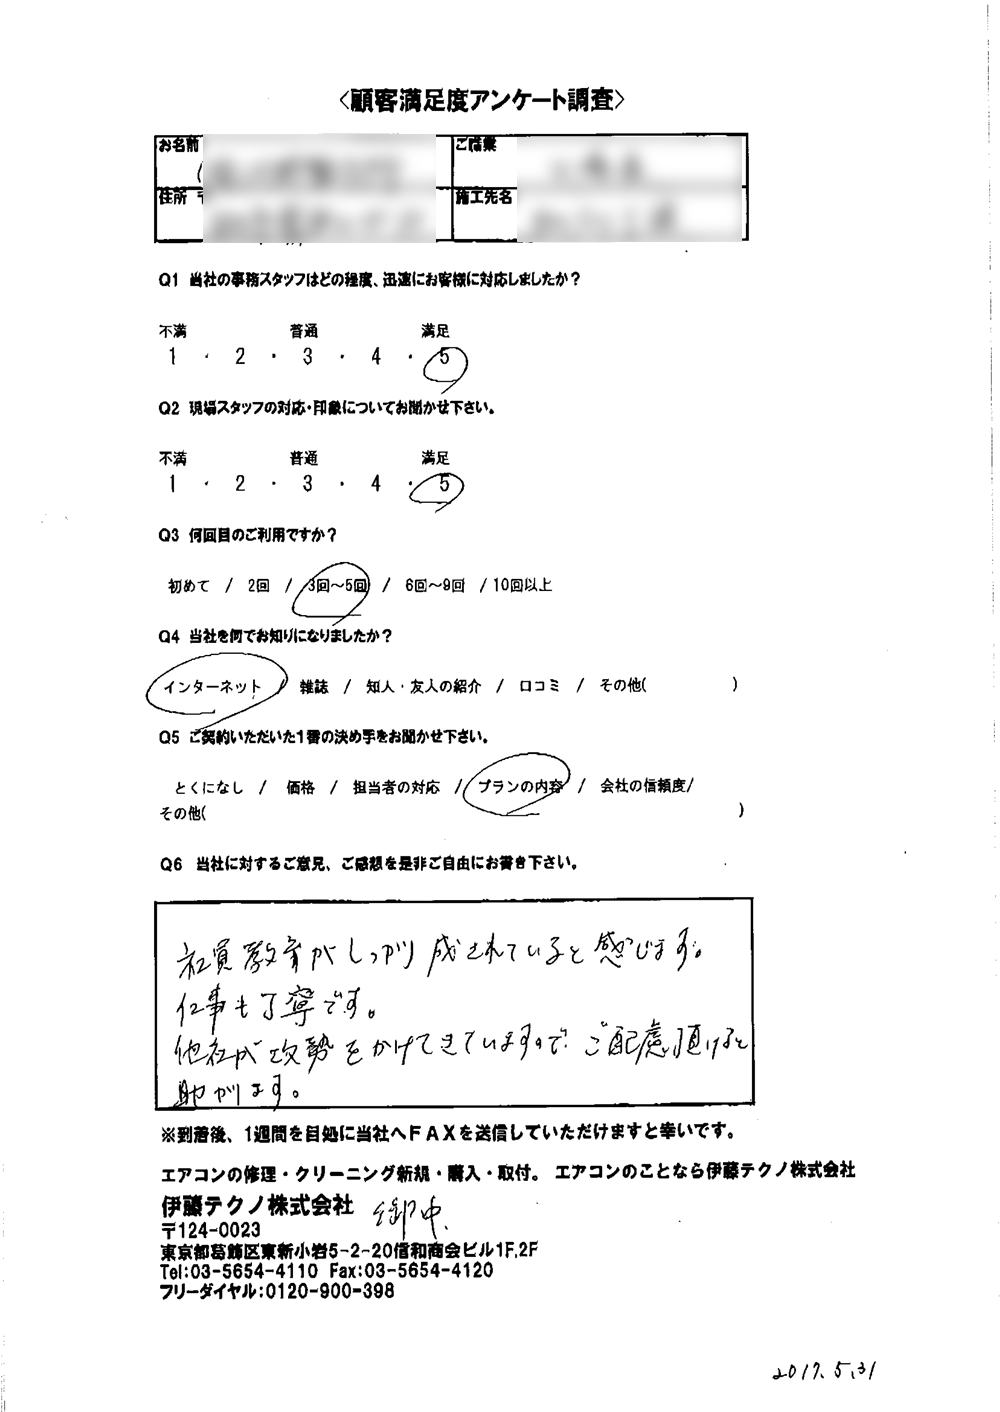 〈顧客満足度アンケート調査〉
お名前
ご職業
住所 〒
施工先名
Q1 当社の事務スタッフはどの程度、迅速にお客様に対応しましたか?
不満 普通 満足
1 ・ 2 ・ 3 ・ 4 ・ 5
Q2 現場スタッフの対応・印象についてお聞かせ下さい。
不満 普通 満足
1 ・ 2 ・ 3 ・ 4 ・ 5
Q3 何回目のご利用ですか?
初めて / 2回 / 3回～5回 / 6回～9回 / 10回以上
Q4 当社を何でお知りになりましたか?
インターネット / 雑誌 / 知人・友人の紹介 / 口コミ / その他( )
Q5 ご契約いただいた1番の決め手をお聞かせ下さい。
とくになし / 価格 / 担当者の対応 / プランの内容 / 会社の信頼度/
その他( )
Q6 当社に対するご意見、ご感想を是非ご自由にお書き下さい。
社員教育がしっかり成されていると感じます。
仕事も丁寧です。
他社が攻勢をかけてきていますので、ご配慮頂けると
助かります。
※到着後、1週間を目処に当社へFAXを送信していただけますと幸いです。
エアコンの修理・クリーニング新規・購入・取付。 エアコンのことなら伊藤テクノ株式会社
伊藤テクノ株式会社 御中
〒124-0023
東京都葛飾区東新小岩5-2-20信和商会ビル1F,2F
Tel:03-5654-4110 Fax:03-5654-4120
フリーダイヤル:0120-900-398
2017.5.31